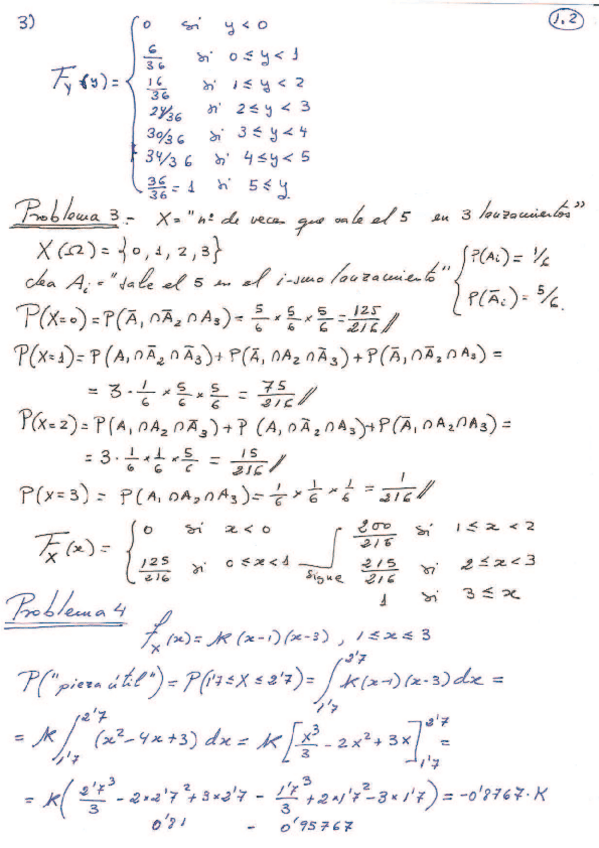 3) 1.2
F_Y(y) = { 0 si y < 0
6/36 si 0 ≤ y < 1
16/36 si 1 ≤ y < 2
24/36 si 2 ≤ y < 3
30/36 si 3 ≤ y < 4
34/36 si 4 ≤ y < 5
36/36 = 1 si 5 ≤ y
Problema 3.- X = "nº de veces que sale el 5 en 3 lanzamientos"
X(Ω) = {0, 1, 2, 3}
A_i = "sale el 5 en el i-simo lanzamiento" { P(A_i) = 1/6
P(Ā_i) = 5/6.
P(X=0) = P(Ā_1 ∩ Ā_2 ∩ A_3) = 5/6 × 5/6 × 5/6 = 125/216 //
P(X=1) = P(A_1 ∩ Ā_2 ∩ Ā_3) + P(Ā_1 ∩ A_2 ∩ Ā_3) + P(Ā_1 ∩ Ā_2 ∩ A_3) =
= 3 · 1/6 × 5/6 × 5/6 = 75/216 //
P(X=2) = P(A_1 ∩ A_2 ∩ Ā_3) + P(A_1 ∩ Ā_2 ∩ A_3) + P(Ā_1 ∩ A_2 ∩ A_3) =
= 3 · 1/6 × 1/6 × 5/6 = 15/216 //
P(X=3) = P(A_1 ∩ A_2 ∩ A_3) = 1/6 × 1/6 × 1/6 = 1/216 //
F_X(x) = { 0 si x < 0
125/216 si 0 ≤ x < 1 sigue
200/216 si 1 ≤ x < 2
215/216 si 2 ≤ x < 3
1 si 3 ≤ x
Problema 4
f_X(x) = K(x-1)(x-3), 1 ≤ x ≤ 3
P("pieza útil") = P(1'7 ≤ X ≤ 2'7) = ∫_{1'7}^{2'7} K(x-1)(x-3) dx =
= K ∫_{1'7}^{2'7} (x² - 4x + 3) dx = K [x³/3 - 2x² + 3x]_{1'7}^{2'7} =
= K(2'7³/3 - 2×2'7² + 3×2'7 - 1'7³/3 + 2×1'7² - 3×1'7) = -0'8767·K
0'81 - 0'95767